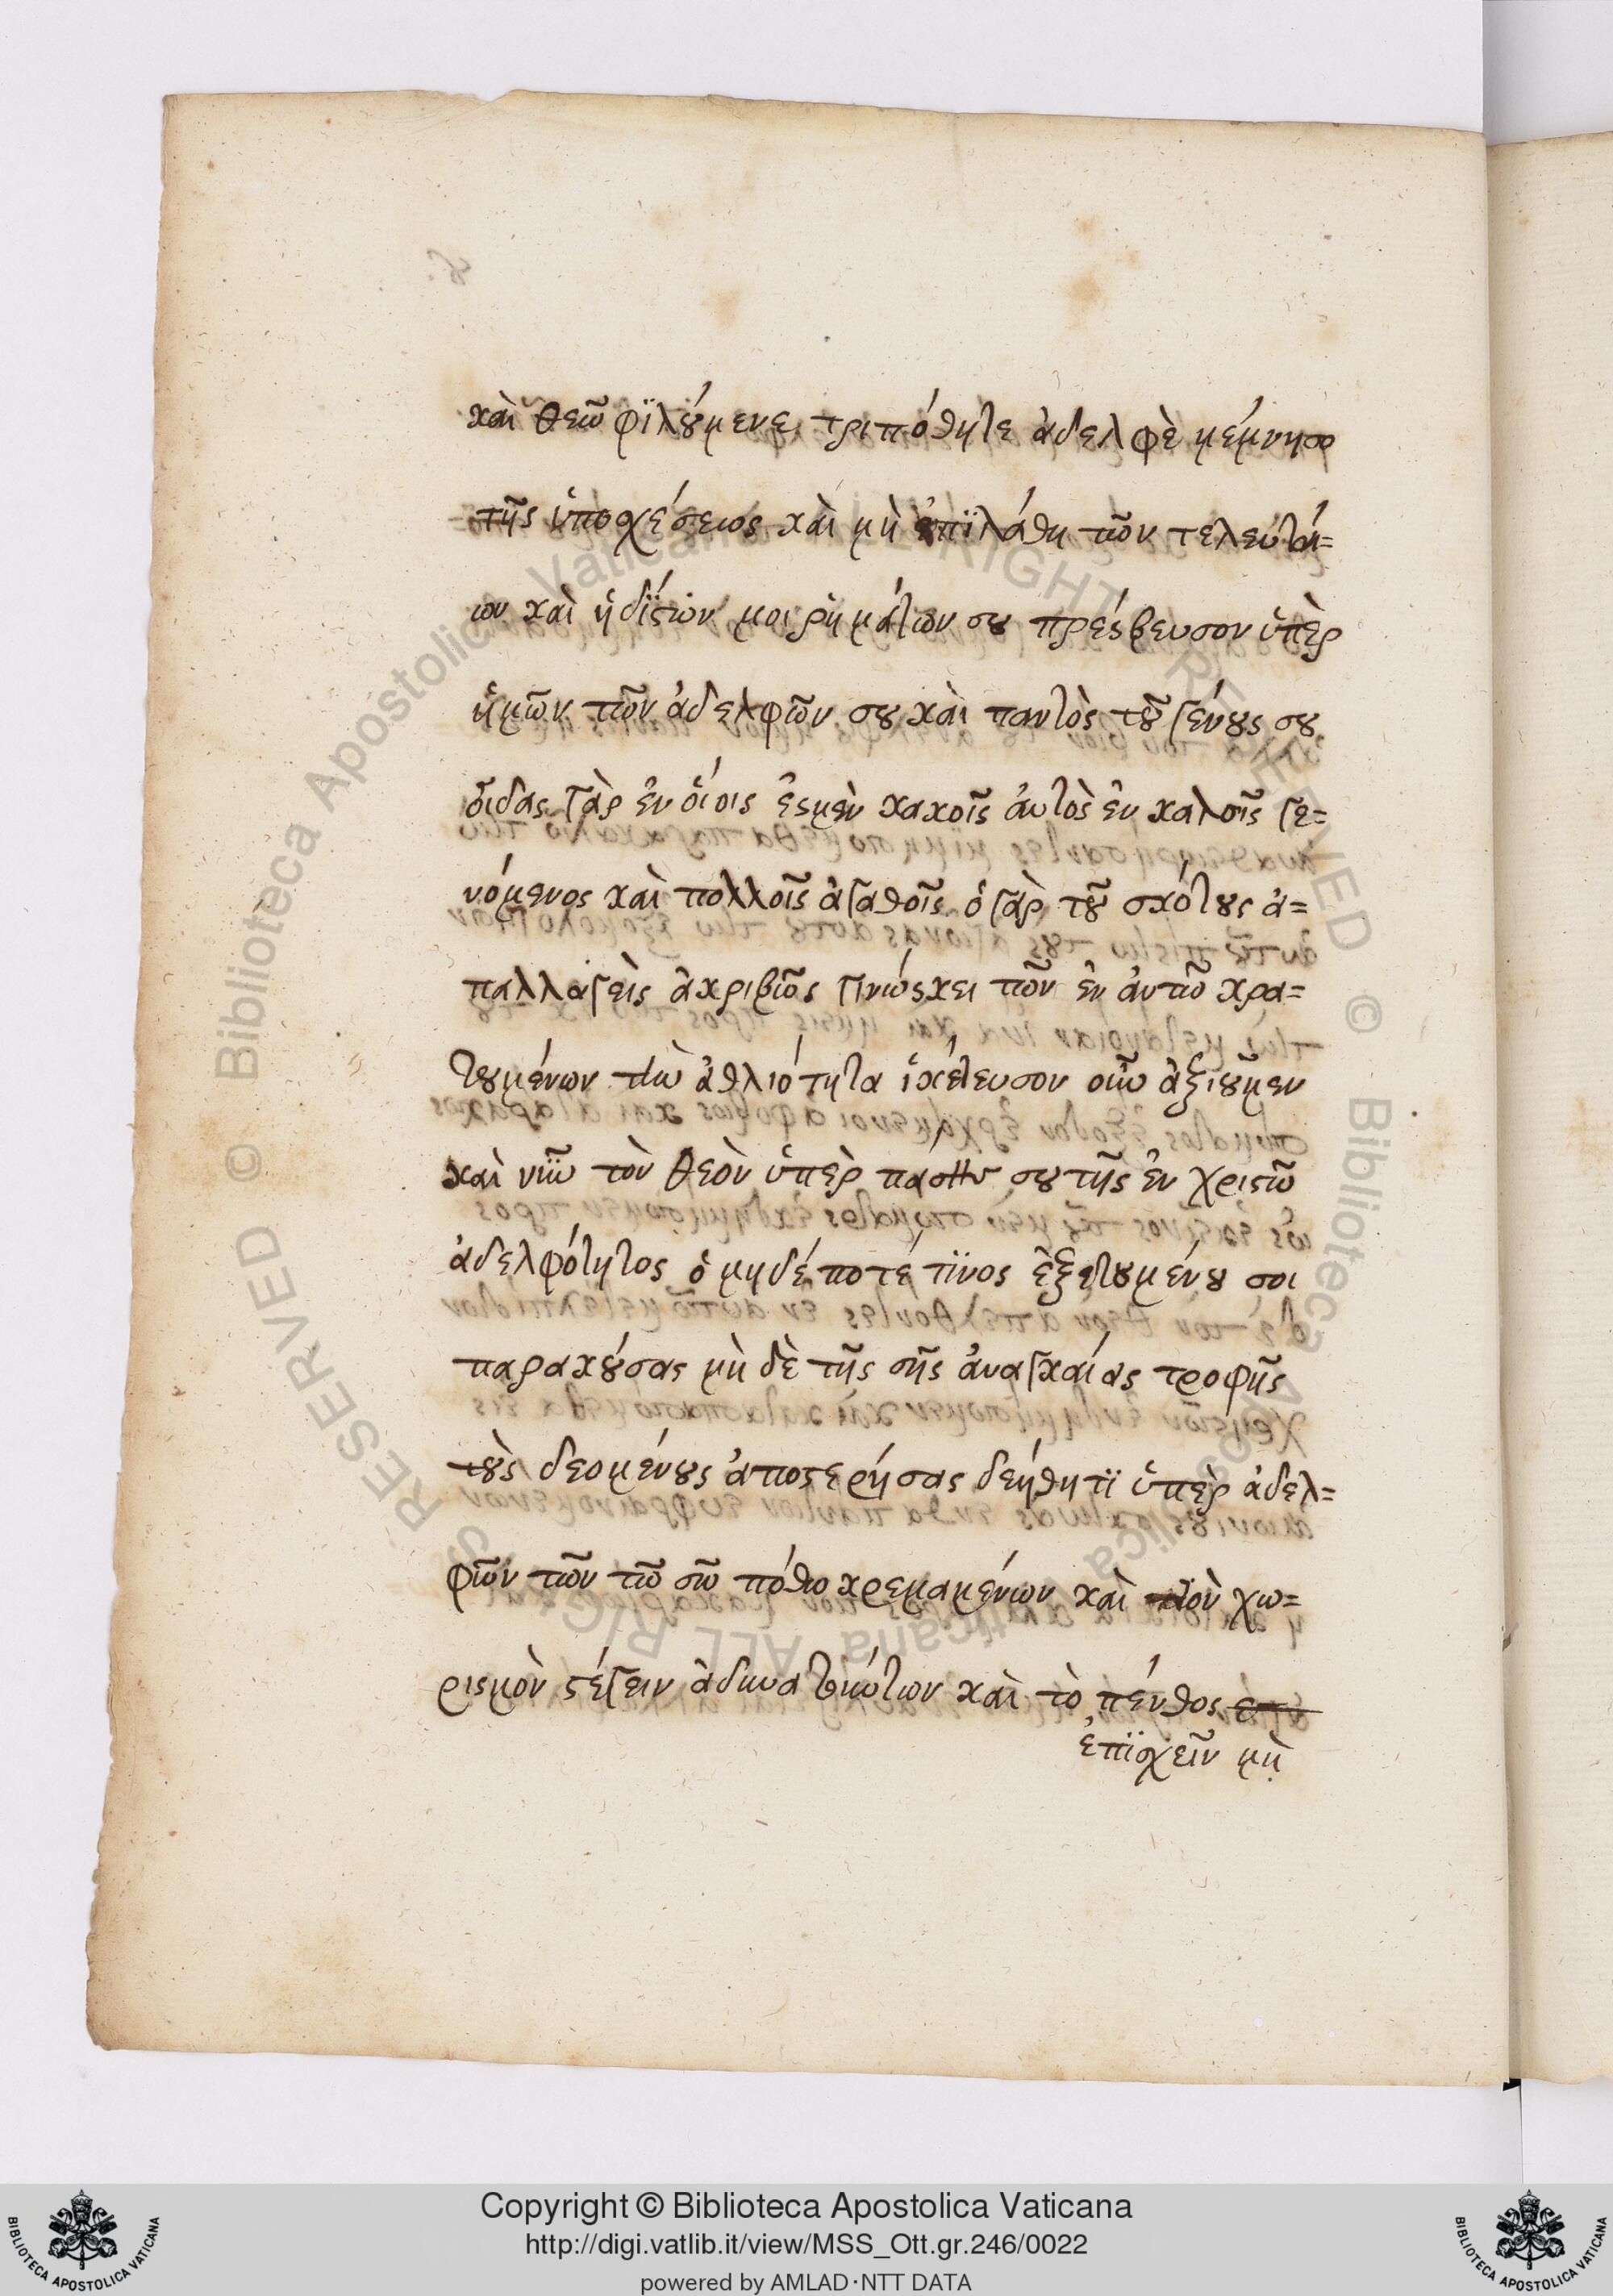 καὶ θεῶ φϊλούμενε, τριπόθητε ἀδελφὲ μέμνησο
τῆς ὑποσχέσεως καὶ μὴ ἐπϊλάθη τῶν τελευταί=
ων καὶ ἡδίϊστων μοι ῥημάτων σου πρέσβευσον ὑπὲρ
ἡμῶν τῶν ἀδελφῶν σου καὶ παντὸς τοῦ γένους σου
οἶδας γὰρ ἐν οἵοις ἐσμὲν κακοῖς ἀυτὸς ἐν καλοῖς γε=
νόμενος καὶ πολλοῖς ἀγαθοῖς, ὁ γὰρ τοῦ σκότους ἀ=
παλλαγεὶς ἀκριβῶς γινώσκει τῶν ἐν ἀυτῶ κρα=
τουμένων τὴν ἀθλιότητα ἱκέτευσον οὖν ἀξιοῦμεν
καὶ νῦν τὸν θεὸν ὑπὲρ πάσης σου τῆς ἐν χριστῶ
ἀδελφότητος ὁ μηδέποτέ τϊνος ἐξαιτουμένου σοι
παρακούσας μὴ δὲ τῆς σῆς ἀναγκαίας τροφῆς
τοὺς δεομένους ἀποστερήσας δεήθητϊ ὑπὲρ ἀδελ=
φῶν τῶν τῶ σῶ πόθω κρεμαμένων καὶ τὸν χω=
ρισμὸν στέγειν ἀδυνατούντων καὶ τὸ πένθος
ἐπϊσχεῖν μὴ
Copyright © Biblioteca Apostolica Vaticana
http://digi.vatlib.it/view/MSS_Ott.gr.246/0022
powered by AMLAD·NTT DATA
BIBLIOTECA APOSTOLICA VATICANA
BIBLIOTECA APOSTOLICA VATICANA